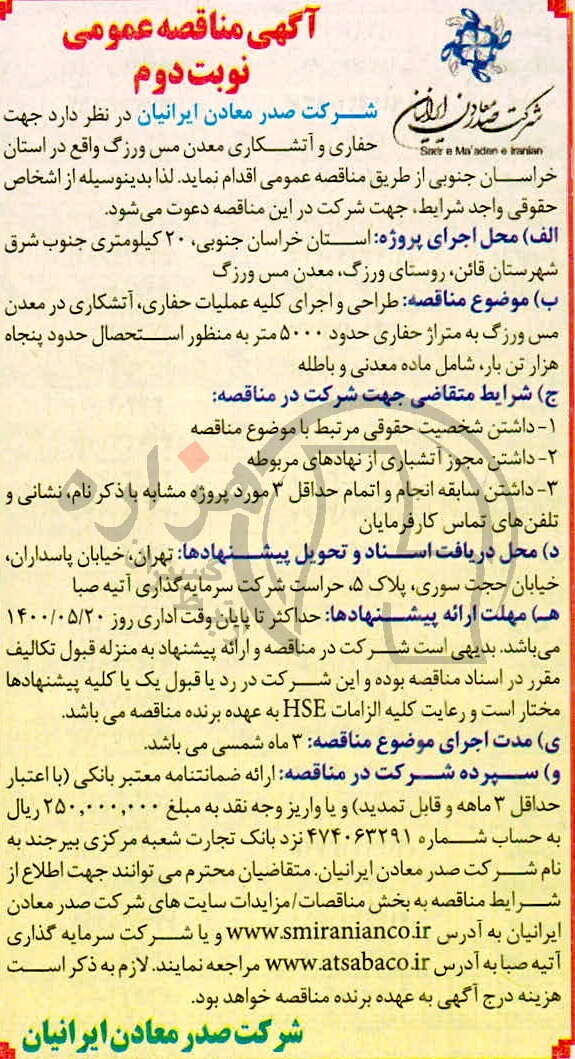 آگهی مناقصه عمومی
نوبت دوم
شرکت صدر معادن ایرانیان
Sadr e Ma'aden e Iranian
شرکت صدر معادن ایرانیان در نظر دارد جهت
حفاری و آتشکاری معدن مس ورزگ واقع در استان
خراسان جنوبی از طریق مناقصه عمومی اقدام نماید. لذا بدینوسیله از اشخاص
حقوقی واجد شرایط، جهت شرکت در این مناقصه دعوت می‌شود.
الف) محل اجرای پروژه: استان خراسان جنوبی، ۲۰ کیلومتری جنوب شرق
شهرستان قائن، روستای ورزگ، معدن مس ورزگ
ب) موضوع مناقصه: طراحی و اجرای کلیه عملیات حفاری، آتشکاری در معدن
مس ورزگ به متراژ حفاری حدود ۵۰۰۰ متر به منظور استحصال حدود پنجاه
هزار تن بار، شامل ماده معدنی و باطله
ج) شرایط متقاضی جهت شرکت در مناقصه:
۱- داشتن شخصیت حقوقی مرتبط با موضوع مناقصه
۲- داشتن مجوز آتشباری از نهادهای مربوطه
۳- داشتن سابقه انجام و اتمام حداقل ۳ مورد پروژه مشابه با ذکر نام، نشانی و
تلفن‌های تماس کارفرمایان
د) محل دریافت اسناد و تحویل پیشنهادها: تهران، خیابان پاسداران،
خیابان حجت سوری، پلاک ۵، حراست شرکت سرمایه‌گذاری آتیه صبا
هـ) مهلت ارائه پیشنهادها: حداکثر تا پایان وقت اداری روز ۱۴۰۰/۰۵/۲۰
می‌باشد. بدیهی است شرکت در مناقصه و ارائه پیشنهاد به منزله قبول تکالیف
مقرر در اسناد مناقصه بوده و این شرکت در رد یا قبول یک یا کلیه پیشنهادها
مختار است و رعایت کلیه الزامات HSE به عهده برنده مناقصه می باشد.
ی) مدت اجرای موضوع مناقصه: ۳ ماه شمسی می باشد.
و) سپرده شرکت در مناقصه: ارائه ضمانتنامه معتبر بانکی (با اعتبار
حداقل ۳ ماهه و قابل تمدید) و یا واریز وجه نقد به مبلغ ۲۵۰,۰۰۰,۰۰۰ ریال
به حساب شماره ۴۷۴۰۶۳۲۹۱ نزد بانک تجارت شعبه مرکزی بیرجند به
نام شرکت صدر معادن ایرانیان. متقاضیان محترم می توانند جهت اطلاع از
شرایط مناقصه به بخش مناقصات/مزایدات سایت های شرکت صدر معادن
ایرانیان به آدرس www.smiranianco.ir و یا شرکت سرمایه گذاری
آتیه صبا به آدرس www.atsabaco.ir مراجعه نمایند. لازم به ذکر است
هزینه درج آگهی به عهده برنده مناقصه خواهد بود.
شرکت صدر معادن ایرانیان